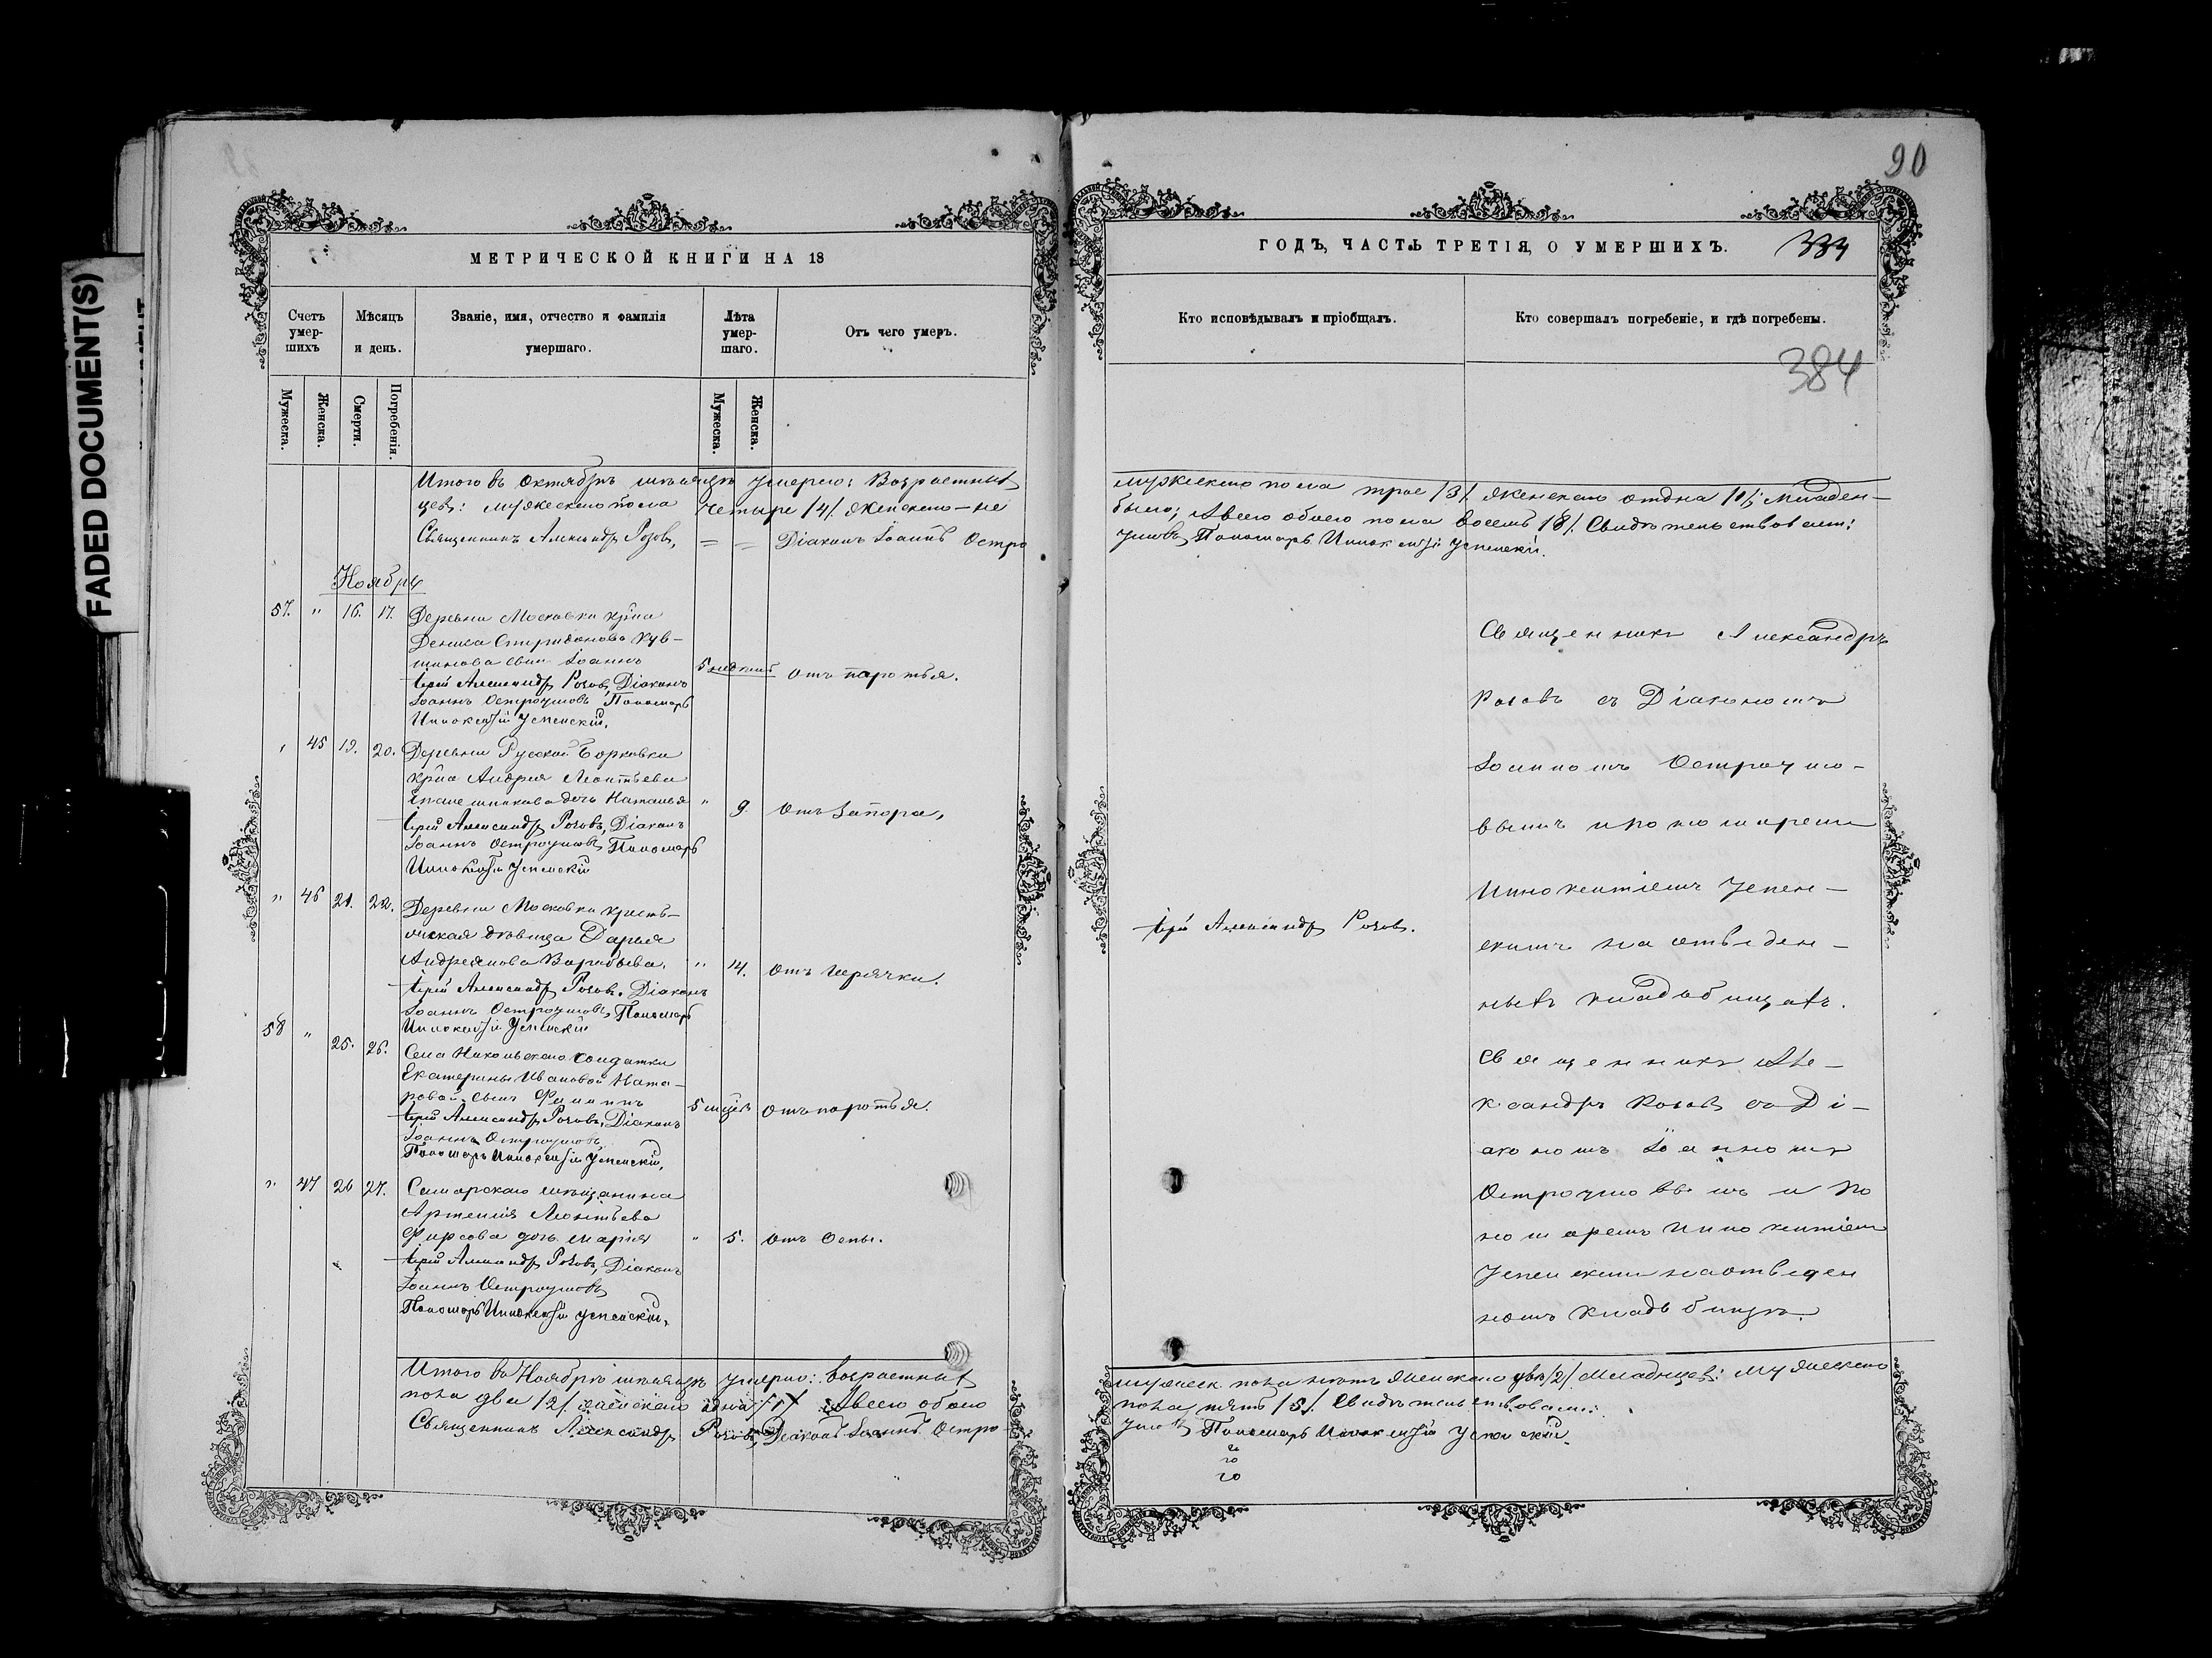 FADED DOCUMENT(S)
90
МЕТРИЧЕСКОЙ КНИГИ НА 18
Счетъ умер-шихъ
Мѣсяцъ и день.
Званіе, имя, отчество и фамилія умершаго.
Лѣта умер-шаго.
Отъ чего умеръ.
Мужеска.
Женска.
Смерти.
Погребенія.
Мужеска.
Женска.
Итого въ Октябрѣ мѣсяцѣ умерло: Возрастныхъ
цевъ: мужескаго пола четыре /4/. женскаго – не
Священникъ Александръ Розовъ, Діаконъ Іоаннъ Остро
Ноябрь
57. " 16. 17. Деревни Московки кр̃на
Дениса Спиридонова Кув-
шинова сынъ Іоаннъ
5 недѣль отъ поротья.
Іерей Александръ Розовъ, Діаконъ
Іоаннъ Остроумовъ Пономарь
Иннокентій Успенскій.
" 45 19. 20. Деревни Русской Борковки
кр̃на Андрея Леонтьева
дочь Наталья " 9 отъ запора,
Іерей Александръ Розовъ, Діаконъ
Іоаннъ Остроумовъ, Пономарь
Иннокентій Успенскій
" 46 21. 22. Деревни Московки кресть-
янская дѣвица Дарья
Андреянова Воробьева. " 14. отъ горячки.
Іерей Александръ Розовъ. Діаконъ
Іоаннъ Остроумовъ, Пономарь
Иннокентій Успенскій
58 " 25. 26. Села Никольскаго солдатки
Екатерины Ивановой Ната-
ровой сынъ Филиппъ
5 мѣсцевъ отъ поротья.
Іерей Александръ Розовъ, Діаконъ
Іоаннъ Остроумовъ
Пономарь Иннокентій Успенскій,
" 47 26 27. Самарскаго мѣщанина
Артемія Леонтьева
Фирсова дочь Марія " 5. отъ Оспы.
Іерей Александръ Розовъ, Діаконъ
Іоаннъ Остроумовъ
Пономарь Иннокентій Успенскій,
Итого въ Ноябрѣ мѣсяцѣ умерло: возрастныхъ
пола два /2/. женскаго одна /1/ Авсего обоего
Священникъ Александръ Розовъ, Діаконъ Іоаннъ Остро
ГОДЪ, ЧАСТЬ ТРЕТІЯ, О УМЕРШИХЪ.
334
Кто исповѣдывалъ и пріобщалъ.
Кто совершалъ погребеніе, и гдѣ погребены.
384
мужскаго пола трое /3/. женскаго одна /1/; Младен-
было; Авсего обоего пола восемь /8/. Свидѣтельствовали:
умовъ, Пономарь Иннокентій Успенскій.
Священникъ Александръ
Розовъ съ Діакономъ
Іоанномъ Остроумо-
вымъ и пономаремъ
Иннокентіемъ Успен-
скимъ на отведен-
ныхъ кладбищахъ.
Іерей Александръ Розовъ.
Священникъ Але-
ксандръ Розовъ съ Ді-
акономъ Іоанномъ
Остроумовымъ и по
номаремъ Иннокентіемъ
Успенскимъ на отведен
номъ кладбищѣ.
мужеск. пола нѣтъ женскаго двѣ /2/. Младенцевъ: мужескаго
пола пять /5/. Свидѣтельствовали:
умовъ Пономарь Иннокентій Успенскій.